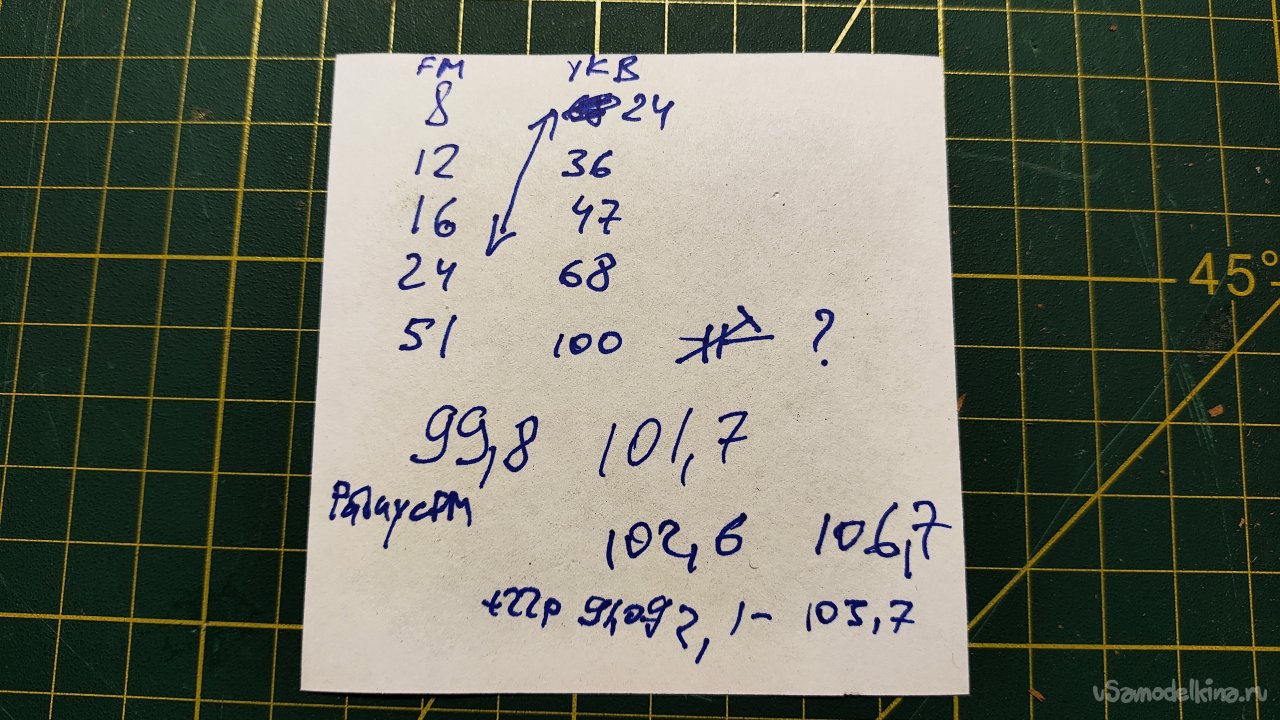 FM УКВ
8 24
12 36
16 47
24 68
51 100 ?
99,8 101,7
102,6 106,7
+22p 92,1- 103,7
45°
vSamodelkina.ru